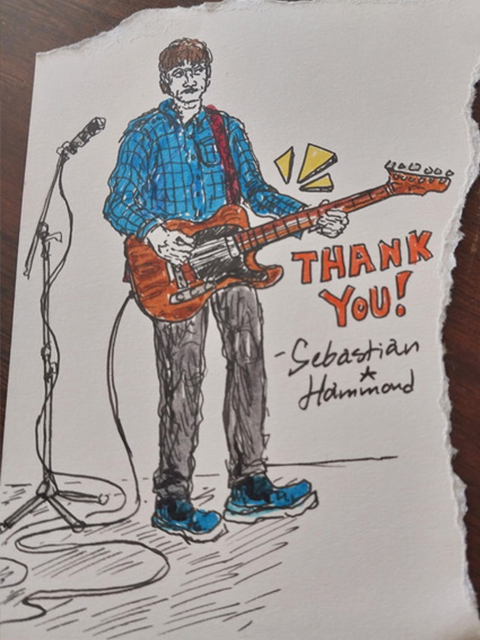 THANK
YOU!
-Sebastian
Hammond